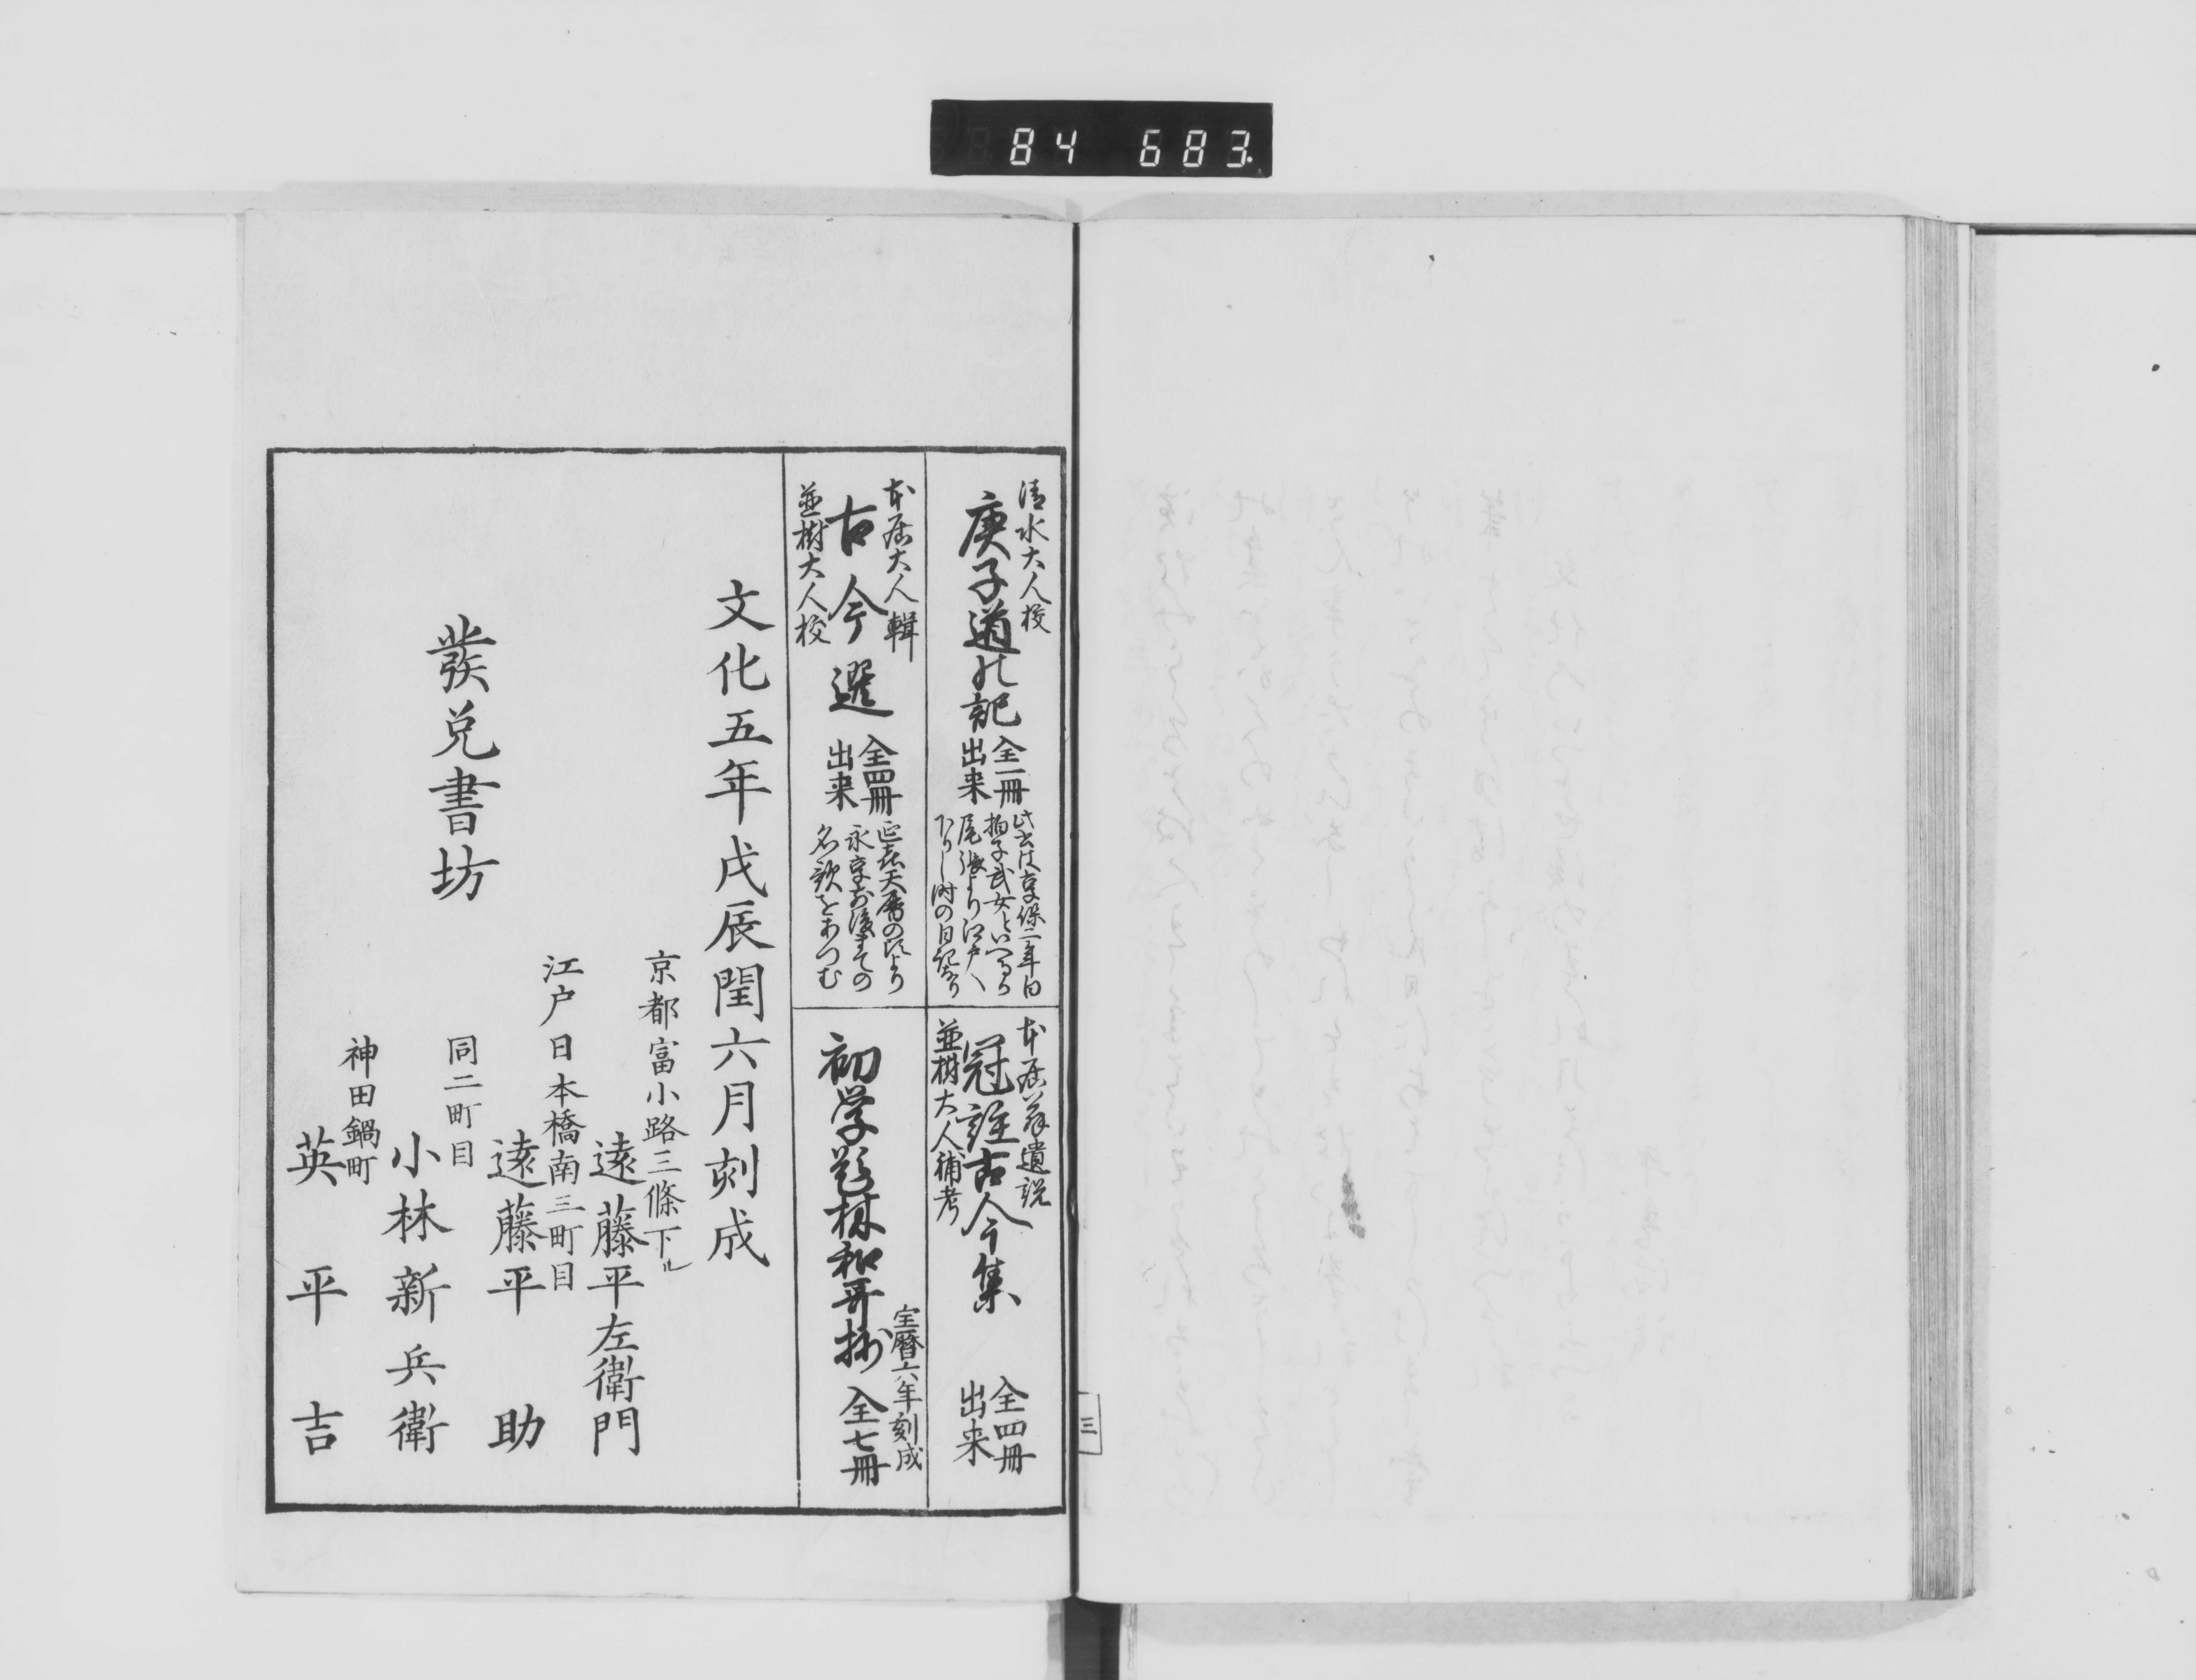 84 683.
清水大人校
庚子道の記
全一冊
出来
此書は享保二年白
拍子武女といへるか
尾張より江戸へ
下りし時の日記なり
本居翁遺説
冠註古今集
並樹大人補考
全四冊
出来
本居大人輯
古今選
並樹大人校
全四冊
出来
延喜天暦の比より
永享前後まての
名歌をあつむ
初学題林和哥抄
宝暦六年刻成
全七冊
文化五年戊辰閏六月刻成
京都富小路三條下ル
遠藤平左衛門
江戸日本橋南三町目
遠藤平助
同二町目
小林新兵衛
神田鍋町
英平吉
發兌書坊
三